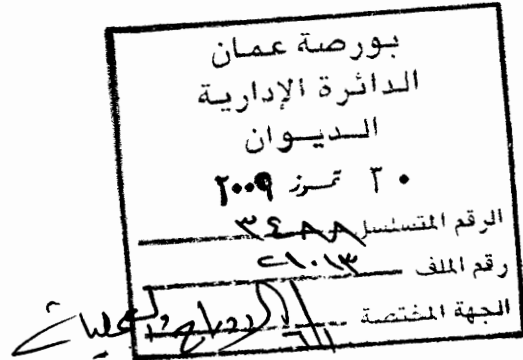 بورصة عمان
الدائرة الإدارية
الديوان
٣٠ تمـوز ٢٠٠٩
الرقم المتسلسل ٣٤٨٨
رقم الملف ٢١٠١٣
الجهة المختصة